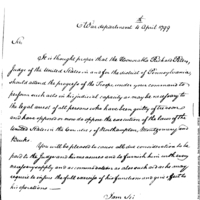 War department 4th April 1799
Sir
It is thought proper that the Honorable Richard Peters,
Judge of the United States in and for the district of Pennsylvania,
should attend the progress of the Troops under your command to
perform such acts in his judicial capacity as may be necessary to
the legal arrest of all persons who have been guilty of treason
and have opposed or now do oppose the execution of the laws of the
United States in the Counties of Northampton, Montgomery and
Bucks.
You will be pleased to cause all due consideration to be
paid to the Judge and
supply and accommodation as also such aid as he may
require to insure the full exercise of his functions and give effect to
his operations
I am Sir